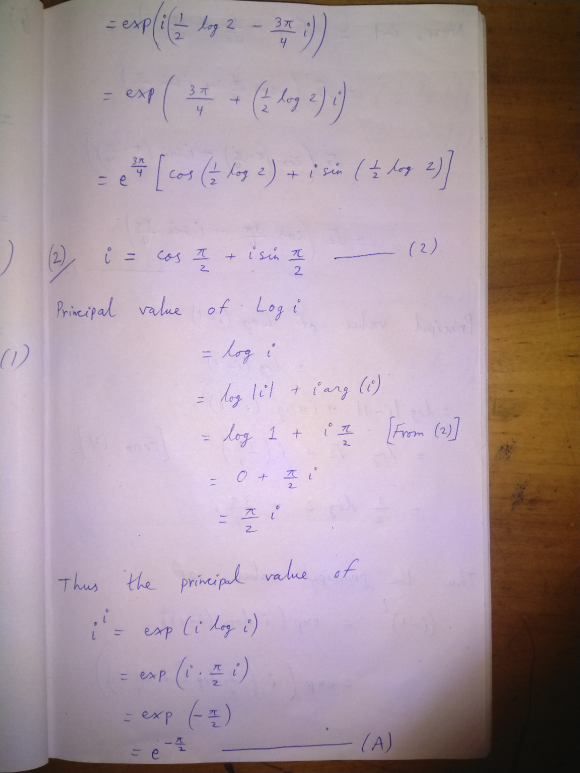 = exp(i(1/2 log 2 - 3π/4 i))
= exp(3π/4 + (1/2 log 2) i)
= e^(3π/4) [cos(1/2 log 2) + i sin(1/2 log 2)]
)
(2) i = cos π/2 + i sin π/2 —— (2)
Principal value of Log i
(1)
= log i
= log |i| + i arg (i)
= log 1 + i π/2 [From (2)]
= 0 + π/2 i
= π/2 i
Thus the principal value of
i^i = exp (i log i)
= exp (i · π/2 i)
= exp (-π/2)
= e^(-π/2) —— (A)